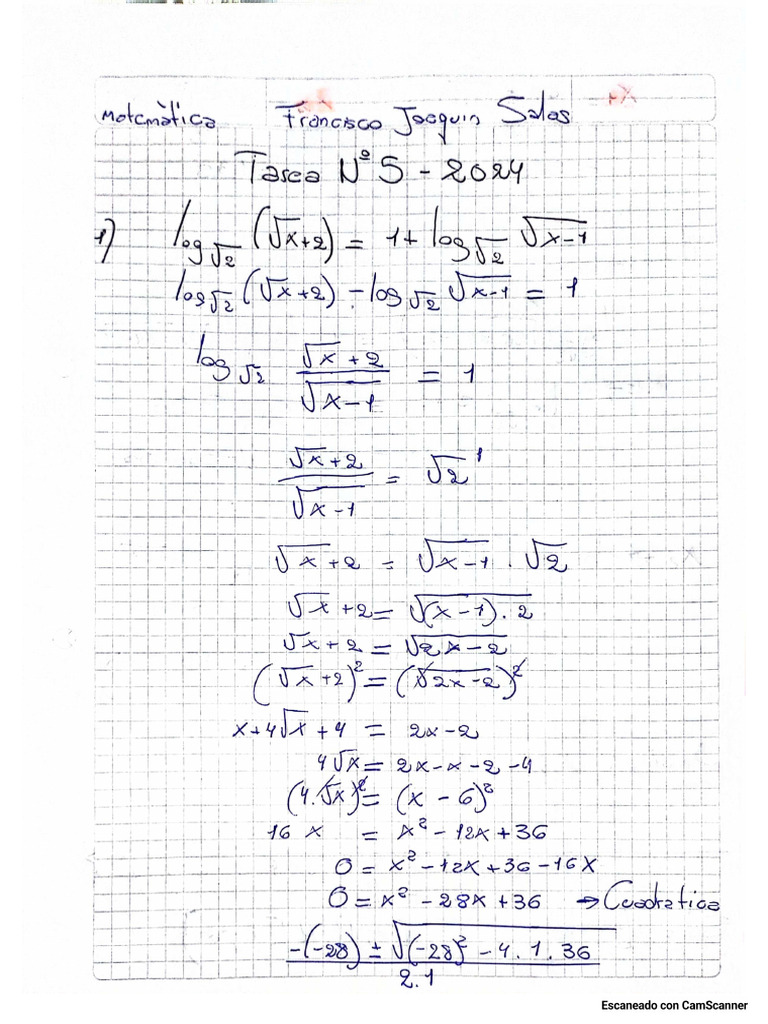 Matemàtica Francisco Joaquin Salas
Tarea Nº 5 - 2024
1) log√2 (√x+2) = 1+ log√2 √(x-1)
log√2 (√x+2) - log√2 √(x-1) = 1
log√2 (√x+2)/√(x-1) = 1
(√x+2)/√(x-1) = √2¹
√x+2 = √(x-1) . √2
√x+2 = √((x-1).2)
√x+2 = √(2x-2)
(√x+2)² = (√(2x-2))²
x+4√x+4 = 2x-2
4√x = 2x-x-2-4
(4.√x)² = (x-6)²
16x = x²-12x+36
0 = x²-12x+36-16x
0 = x²-28x+36 → Cuadratica
(-(-28) ± √((-28)²-4.1.36))/2.1
Escaneado con CamScanner